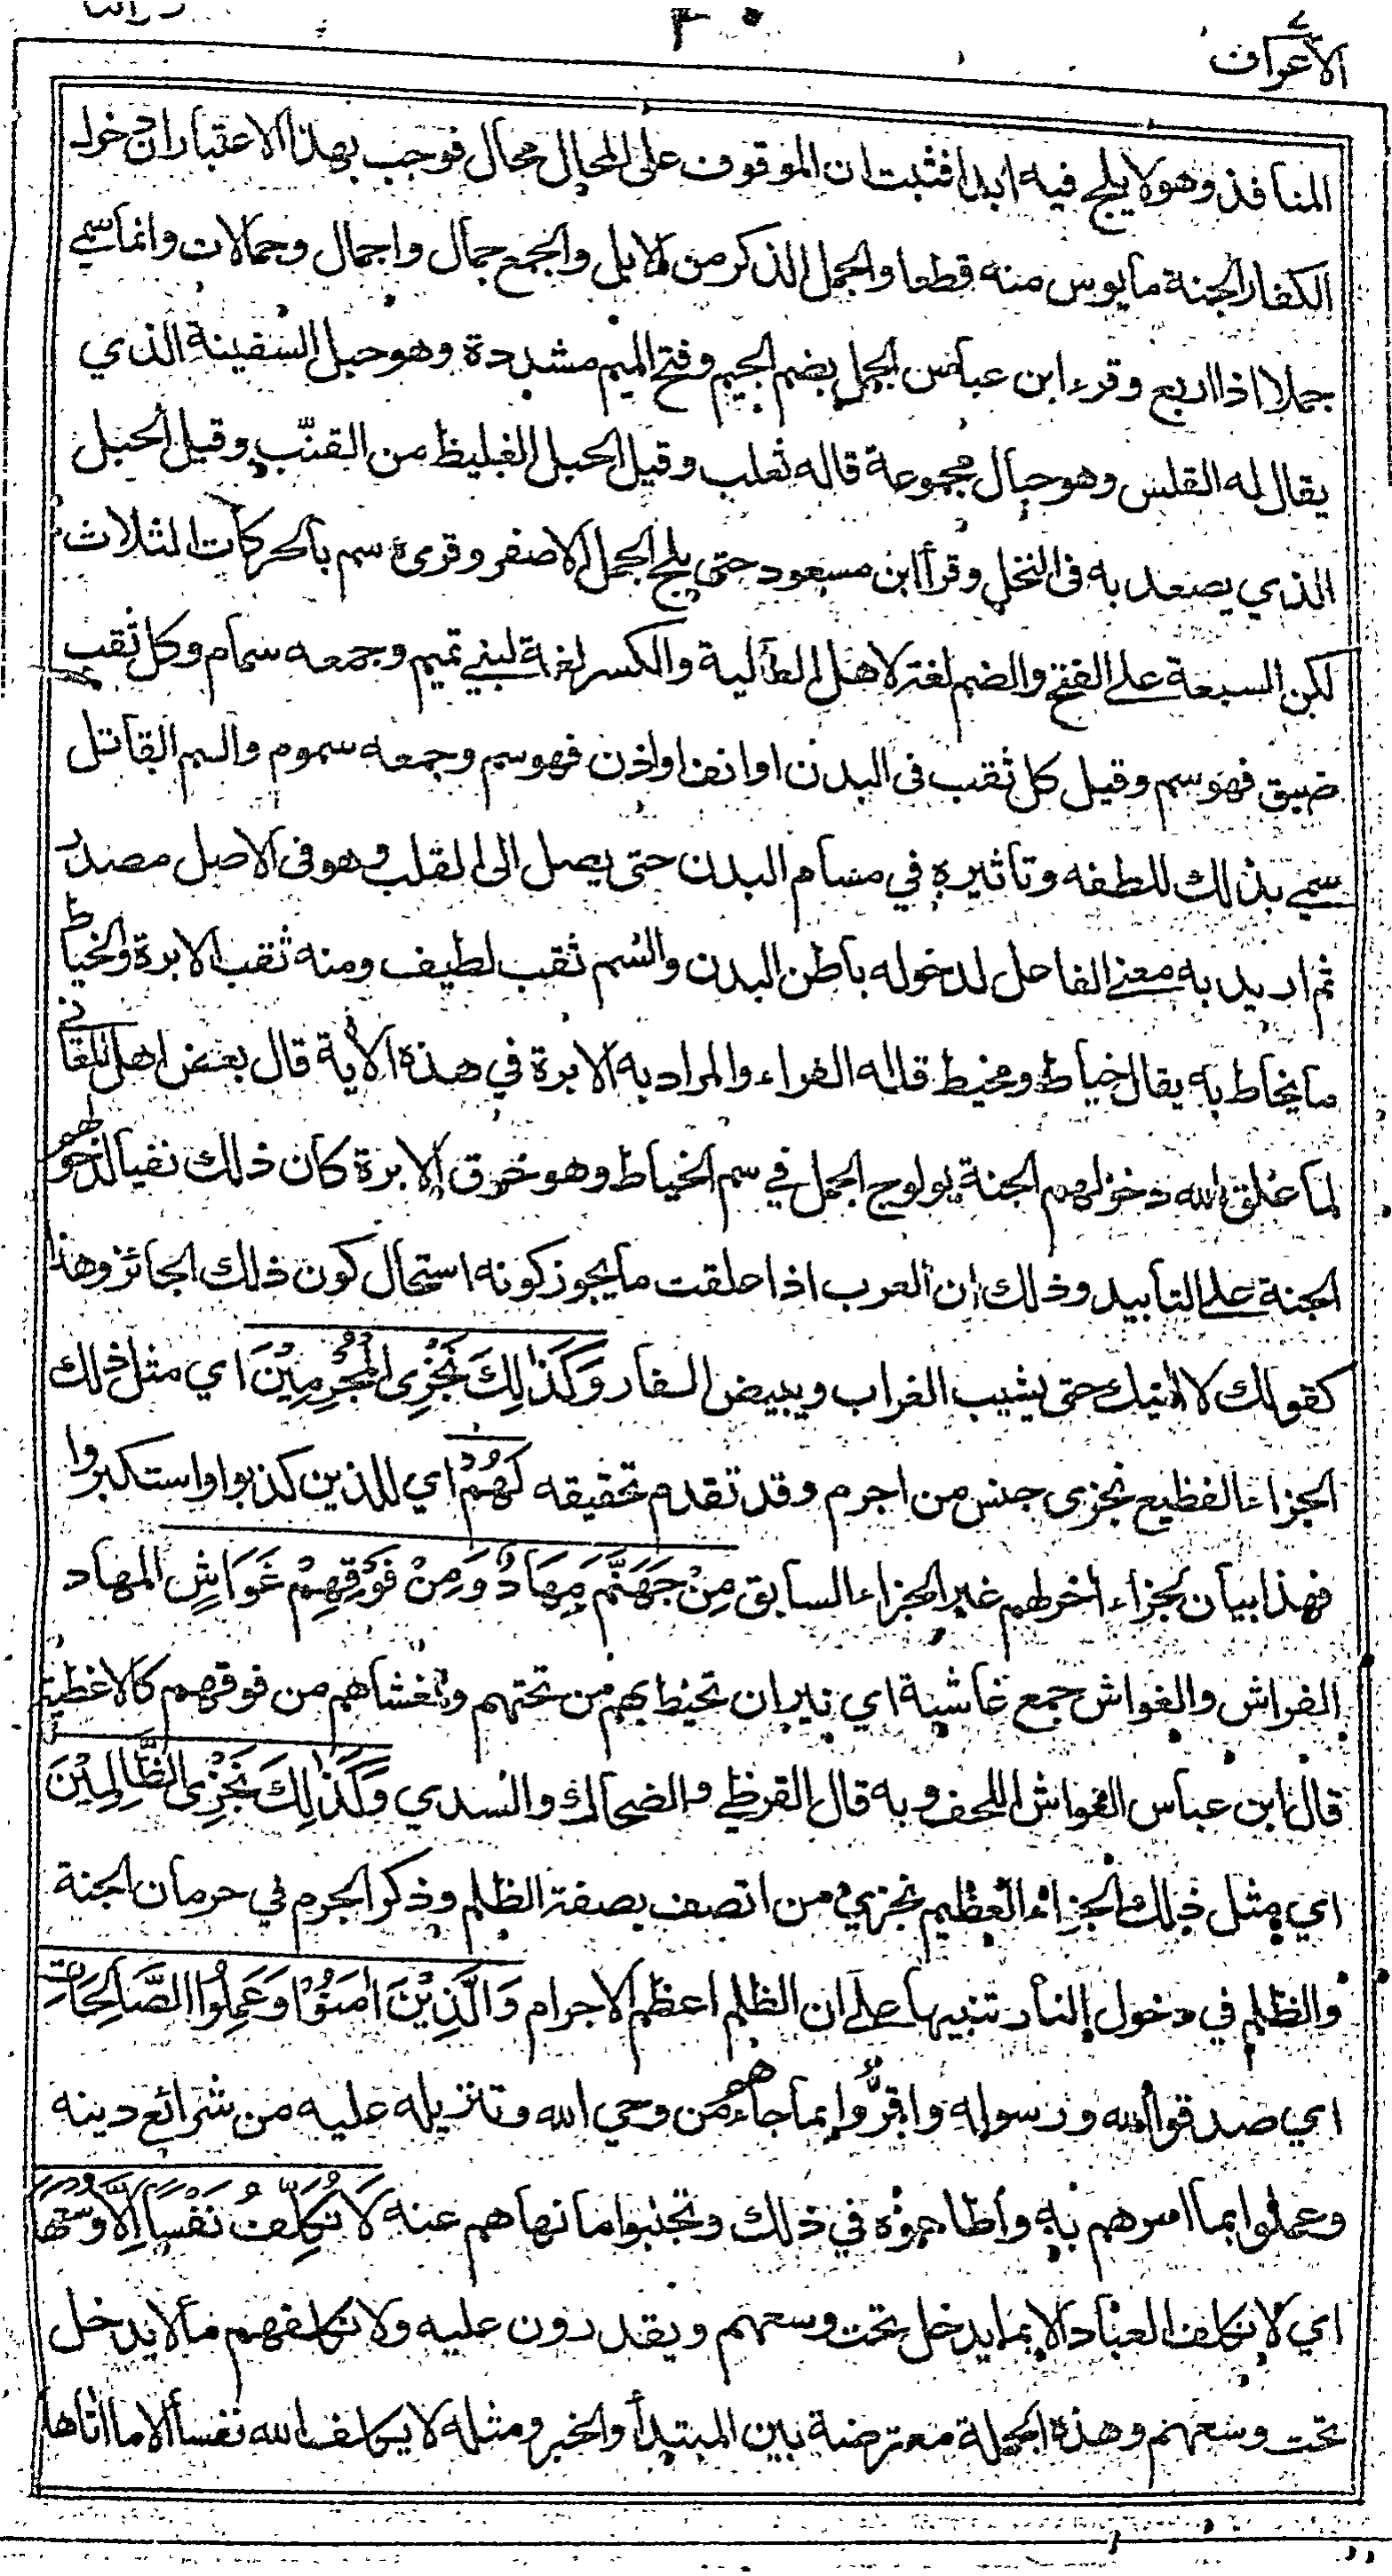 الاعراف
المنافذ وهو لا يلج فيه ابدا فثبت ان الموقوف على المحال محال فوجب بهذا الاعتبار ان دخول
الكفار الجنة مايوس منه قطعا والجمل الذكر من الابل والجمع جمال واجمال وجمالات وانما سمي
جملا اذا اربع وقرء ابن عباس الجمل بضم الجيم وفتح الميم مشددة وهو حبل السفينة الذي
يقال له القلس وهو حبال مجموعة قاله ثعلب وقيل الحبل الغليظ من القنّب وقيل الحبل
الذي يصعد به فى النخل وقرأ ابن مسعود حتى يلج الجمل الاصفر وقرىء سم بالحركات الثلاث
لكن السبعة على الفتح والضم لغة لاهل العالية والكسر لغة لبني تميم وجمعه سمام وكل ثقب
ضيق فهو سم وقيل كل ثقب فى البدن او انف او اذن فهو سم وجمعه سموم والسم القاتل
سمي بذلك للطفه وتاثيره في مسام البدن حتى يصل الى القلب وهو فى الاصل مصدر
ثم اريد به معنى الفاعل لدخوله باطن البدن والسُم ثقب لطيف ومنه ثقب الابرة والخياط
ما يخاط به يقال خياط ومخيط قاله الفراء والمراد به الابرة في هذة الأية قال بعض اهل المعاني
لما علق الله دخولهم الجنة بولوج الجمل في سم الخياط وهو خرق الابرة كان ذلك نفيا لدخولهم
الجنة على التابيد وذلك ان العرب اذا علقت ما يجوز كونه استحال كون ذلك الجائز وهذا
كقولك لا اتيك حتى يشيب الغراب ويبيض القار وَكَذٰلِكَ نَجْزِى الْمُجْرِمِيْنَ اي مثل ذلك
الجزاء الفظيع نجزى جنس من اجرم وقد تقدم تحقيقه لَهُمْ اي للذين كذبوا واستكبروا
فهذا بيان لجزاء أخر لهم غير الجزاء السابق مِنْ جَهَنَّمَ مِهَادٌ وَمِنْ فَوْقِهِمْ غَوَاشٍ المهاد
الفراش والغواش جمع غاشية اي نيران تحيط بهم من تحتهم وتغشاهم من فوقهم كالاغطية
قال ابن عباس الغواش اللحف وبه قال القرظي والضحاك والسدي وَكَذٰلِكَ نَجْزِى الظَّالِمِيْنَ
اي مثل ذلك الجزاء العظيم نجزي من اتصف بصفة الظلم وذكر الجرم في حرمان الجنة
والظلم في دخول النار تنبيها على ان الظلم اعظم الاجرام وَالَّذِيْنَ اٰمَنُوْا وَعَمِلُوا الصَّالِحَاتِ
اي صدقوا الله ورسوله واقرُّوا بما جاءهم من وحي الله وتنزيله عليه من شرائع دينه
وعملوا بما امرهم به واطاعوه في ذلك وتجنبوا ما نهاهم عنه لَا نُكَلِّفُ نَفْسًا اِلَّا وُسْعَهَا
اي لا نكلف العباد الا بما يدخل تحت وسعهم ويقدرون عليه ولا نكلفهم ما لا يدخل
تحت وسعهم وهذة الجملة معترضة بين المبتدأ والخبر ومثله لا يكلف الله نفسا الا ما اتاها